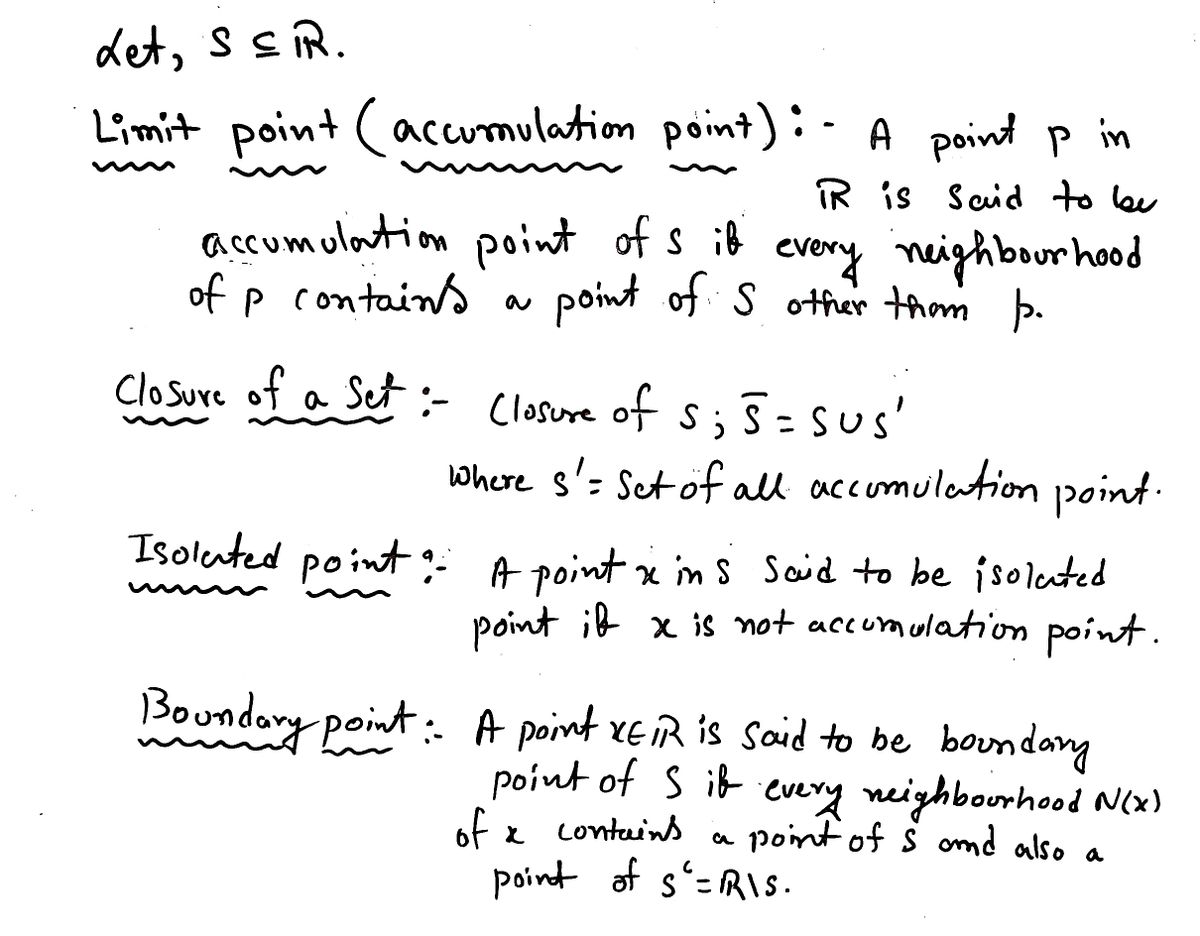 Let, S ⊆ ℝ.
Limit point (accumulation point):- A point p in
ℝ is said to be
accumulation point of S if every neighbourhood
of p contains a point of S other than p.
Closure of a Set :- Closure of S; S̅ = S ∪ S'
Where S' = Set of all accumulation point.
Isolated point :- A point x in S said to be isolated
point if x is not accumulation point.
Boundary point :- A point x ∈ ℝ is said to be boundary
point of S if every neighbourhood N(x)
of x contains a point of S and also a
point of Sᶜ = ℝ\S.